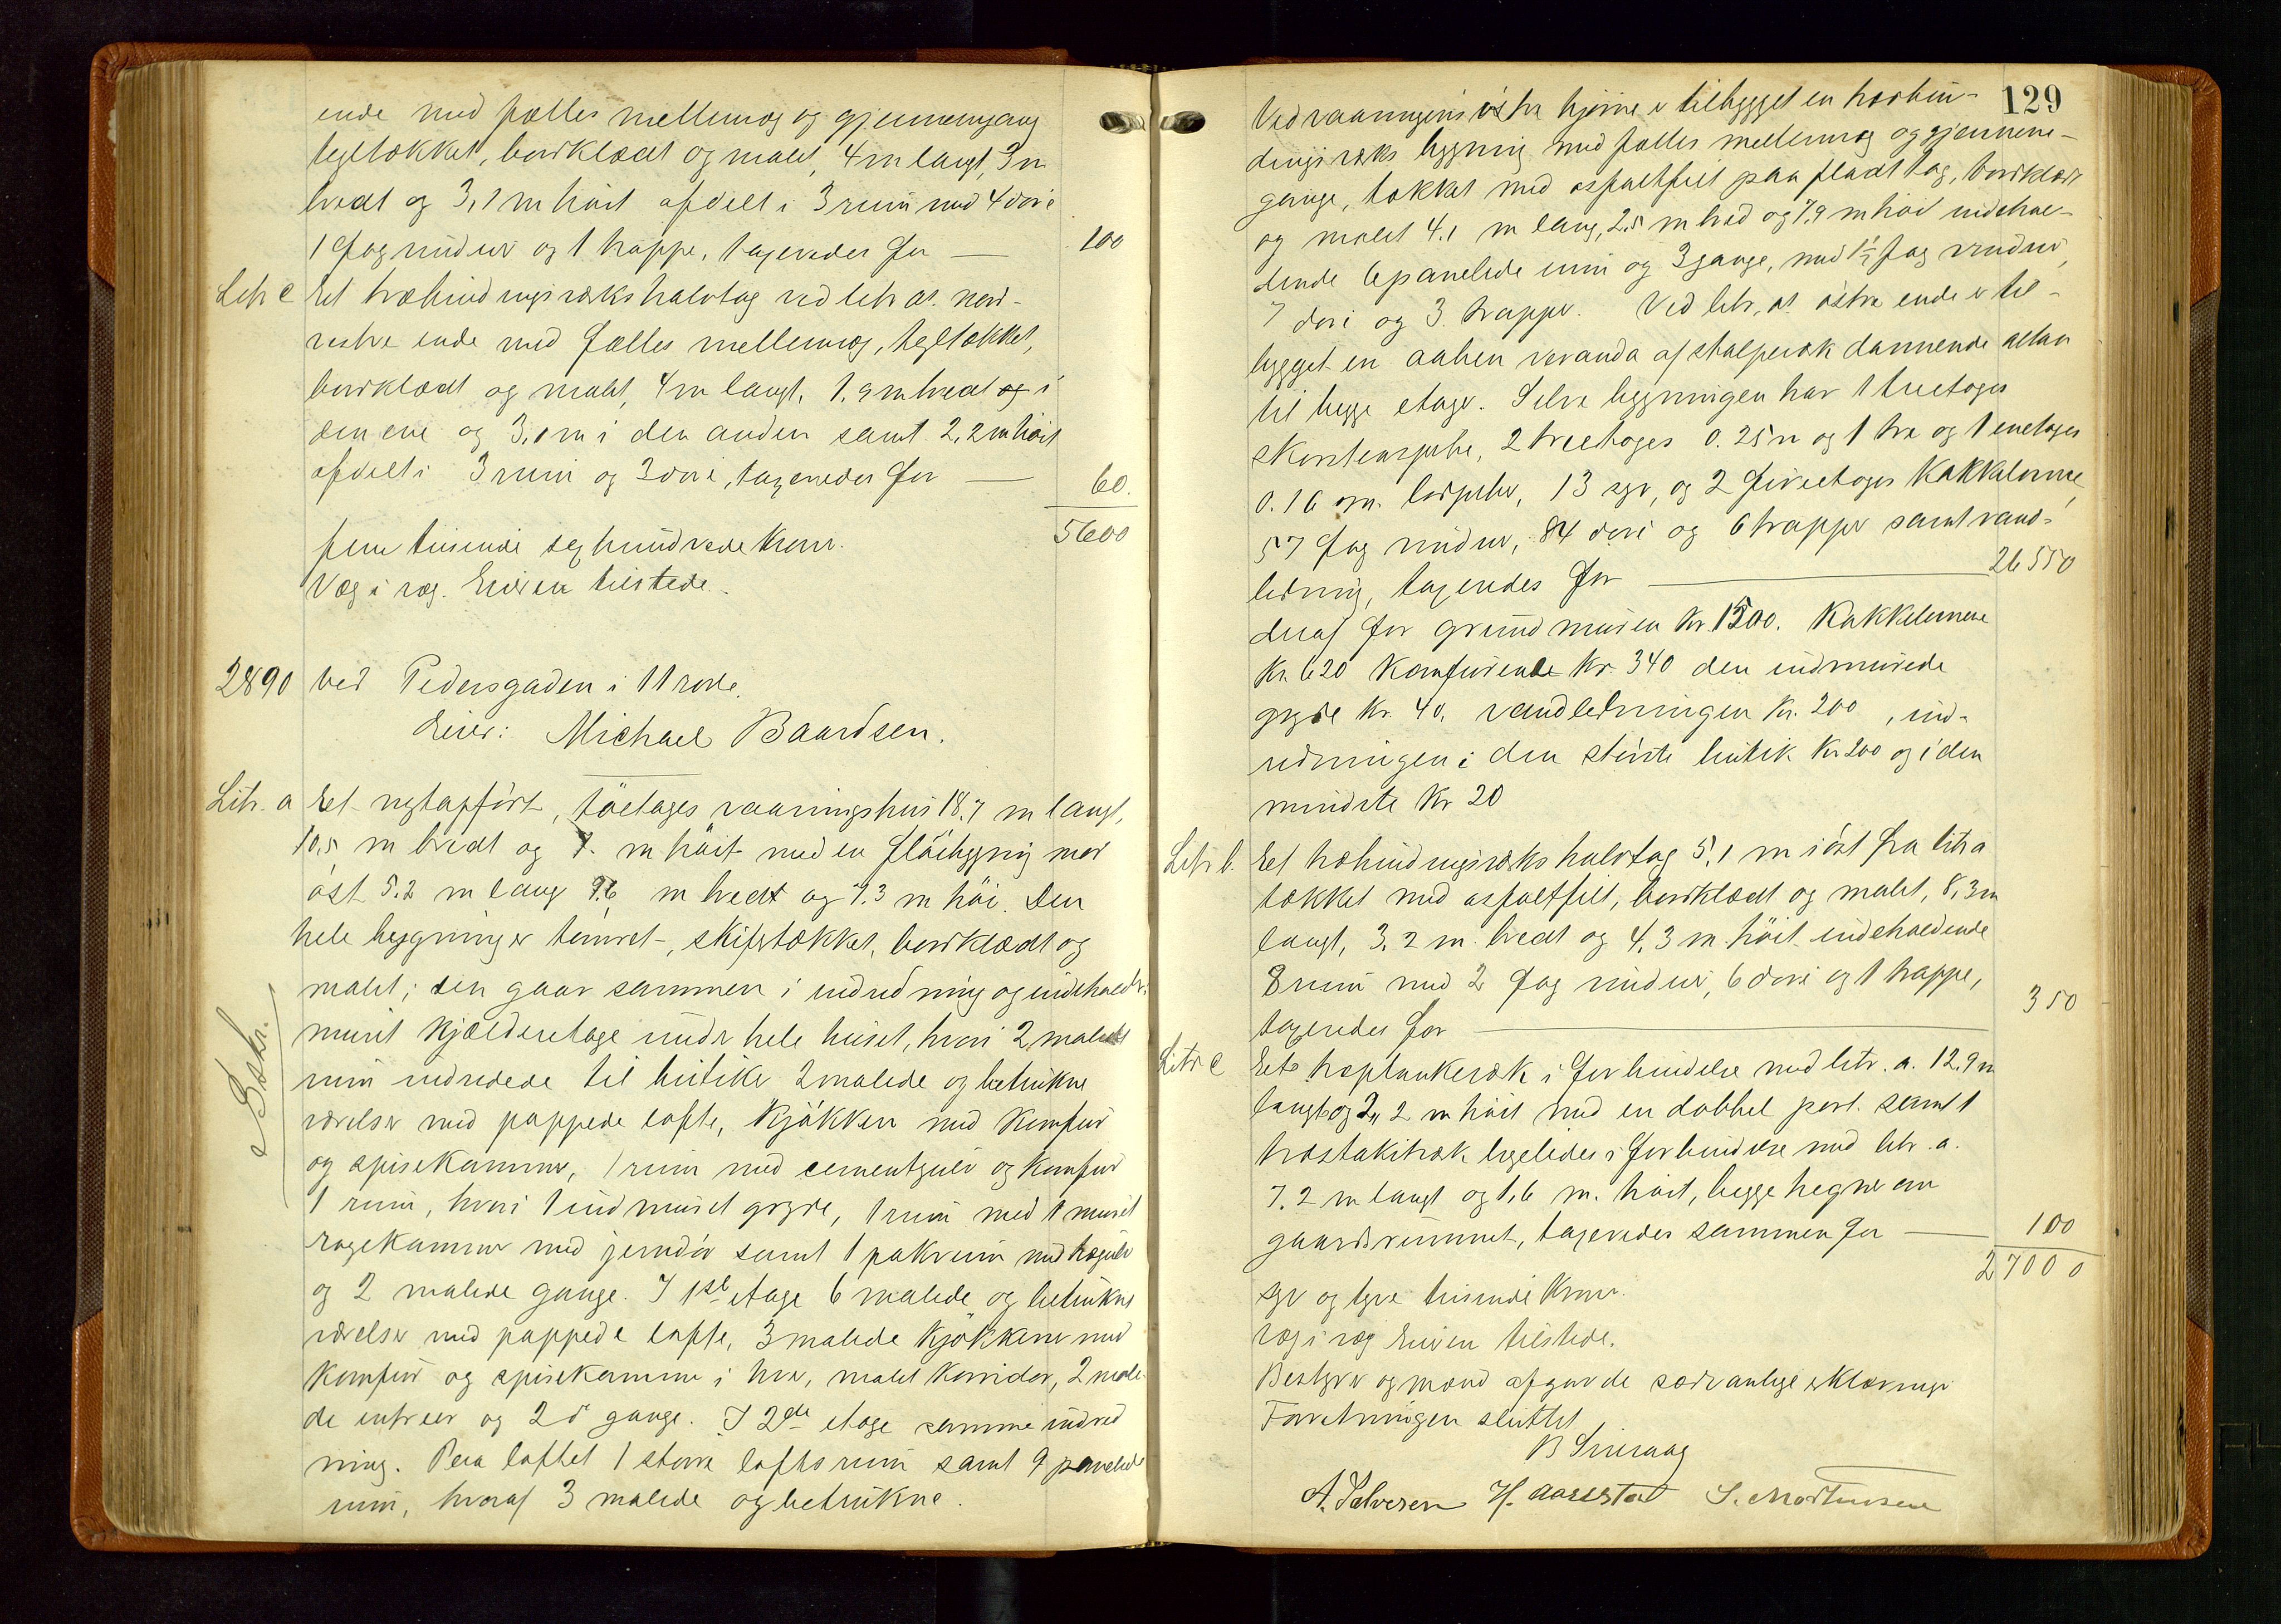 ende med fælles mellemvæg og gjennemgang
tegltækket, bordklædt og malet, 4 m langt, 3 m
bredt og 3,1 m höit afdelt i 3 rum med 4 döre
1 fag vinduer og 1 trappe, taxeredes for — 100
Litr c Et træbindingsværks halvtag ved litr a's nord-
vestre ende med fælles mellemvæg, tegltækket,
bordklædt og malet, 4 m langt, 1,9 m bredt og i
den ene og 3,0 m i den anden samt 2,2 m höit
afdelt i 3 rum og 3 döre, taxeredes for — 60.
5600
fem tusinde sex hundrede kroner.
Væg i væg. Eieren tilstede.
2890 ved Pedersgaden i 11 rode.
Eier: Michael Baardsen.
Litr. a Et nyt opfört, toetages vaaningshus 18.7 m langt,
10,5 m bredt og 7. m höit med en flöibygning mod
öst 5.2 m lang 9.6 m bredt og 7.3 m höi. Den
hele bygning er tömret, skifertækket, bordklædt og
malet; den gaar sammen i indredning og indeholder:
muret kjælderetage under hele huset, hvori 2 malede
rum indredede til butiker 2 malede og betrukne
værelser med pappede lofte, kjökken med komfur
og spisekammer, 1 rum med cementgulv og komfur
1 rum, hvori 1 indmuret gryde, 1 rum med 1 muret
røgekammer med jerndör samt 1 pakrum med trægulv
og 2 malede gange. I 1ste etage 6 malede og betrukne
værelser med pappede lofte, 3 malede kjökkener med
komfur og spisekammer i hver, malet korridor, 2 male-
de entreer og 2 do gange. I 2den etage samme indred
ning. Paa loftet 1 större loftsrum samt 9 panelede
rum, hvoraf 3 malede og betrukne.
129
Ved vaaningens östre hjörne er tilbygget en træbin-
dingsværks bygning med fælles mellemvæg og gjennem-
gange, tækket med asfaltfilt paa fladt tag, bordklædt
og malet 4.1 m lang, 2.5 m bred og 7.9 m höi indehol-
dende 6 panelede rum og 3 gange, med 1½ fag vinduer,
7 döre og 3 trapper. Ved litr. a's östre ende er til-
bygget en aaben veranda af stolpeværk dannende altan
til begge etager. Selve bygningen har 1 treetages
skorstenspibe, 2 treetages 0.25 m og 1 tre og 1 enetages
0.16 m. lodpiber, 13 og 2 fireetages kakkelovne,
57 fag vinduer, 84 döre og 6 trapper samt vand-
ledning, taxeredes for — 26550
deraf for grundmuren kr 1500. kakkelovnene
kr. 620 komfurende kr. 340 den indmurede
gryde kr. 40, vandledningen kr. 200, ind-
redningen i den störste butik kr 200 og i den
mindste kr 20
Litr b. Et træbindingsværks halvtag 5,1 m i öst fra litr a
tækket med asfaltfilt, bordklædt og malet, 8,3 m
langt, 3,2 m. bredt og 4,3 m höit indeholdende
8 rum med 2 fag vinduer, 6 döre og 1 trappe,
taxeredes for — 350
Litr c Et træplankeværk i forbindelse med litr. a. 12,9 m
langt og 2,2 m höit med en dobbel port. samt 1
træstakitværk ligeledes i forbindelse med litr. a.
7.2 m langt og 1,6 m. höit, begge hegner om
gaardsrummet, taxeredes sammen for — 100
27000
syv og tyve tusinde kroner.
væg i væg Eieren tilstede.
Bestyrer og mænd afgav de sædvanlige erklæringer
Forretningen sluttet
A. Salvesen H. Aarestad S. Mortensen